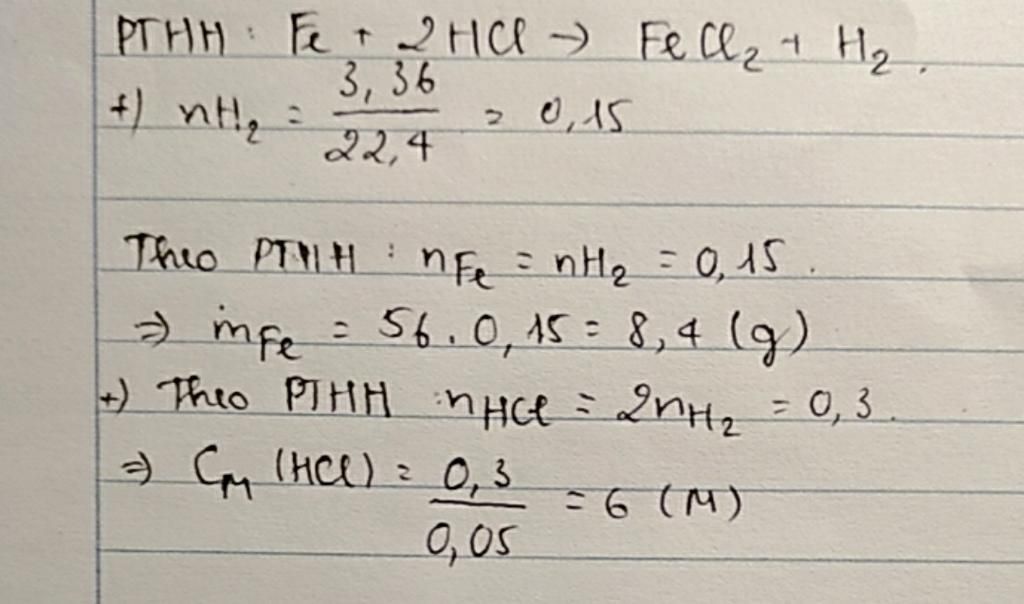 PTHH: Fe + 2HCl → FeCl₂ + H₂.
+) nH₂ = 3,36 / 22,4 = 0,15
Theo PTHH: nFe = nH₂ = 0,15.
⇒ mFe = 56.0,15 = 8,4 (g)
+) Theo PTHH: nHCl = 2nH₂ = 0,3.
⇒ CM (HCl) = 0,3 / 0,05 = 6 (M)